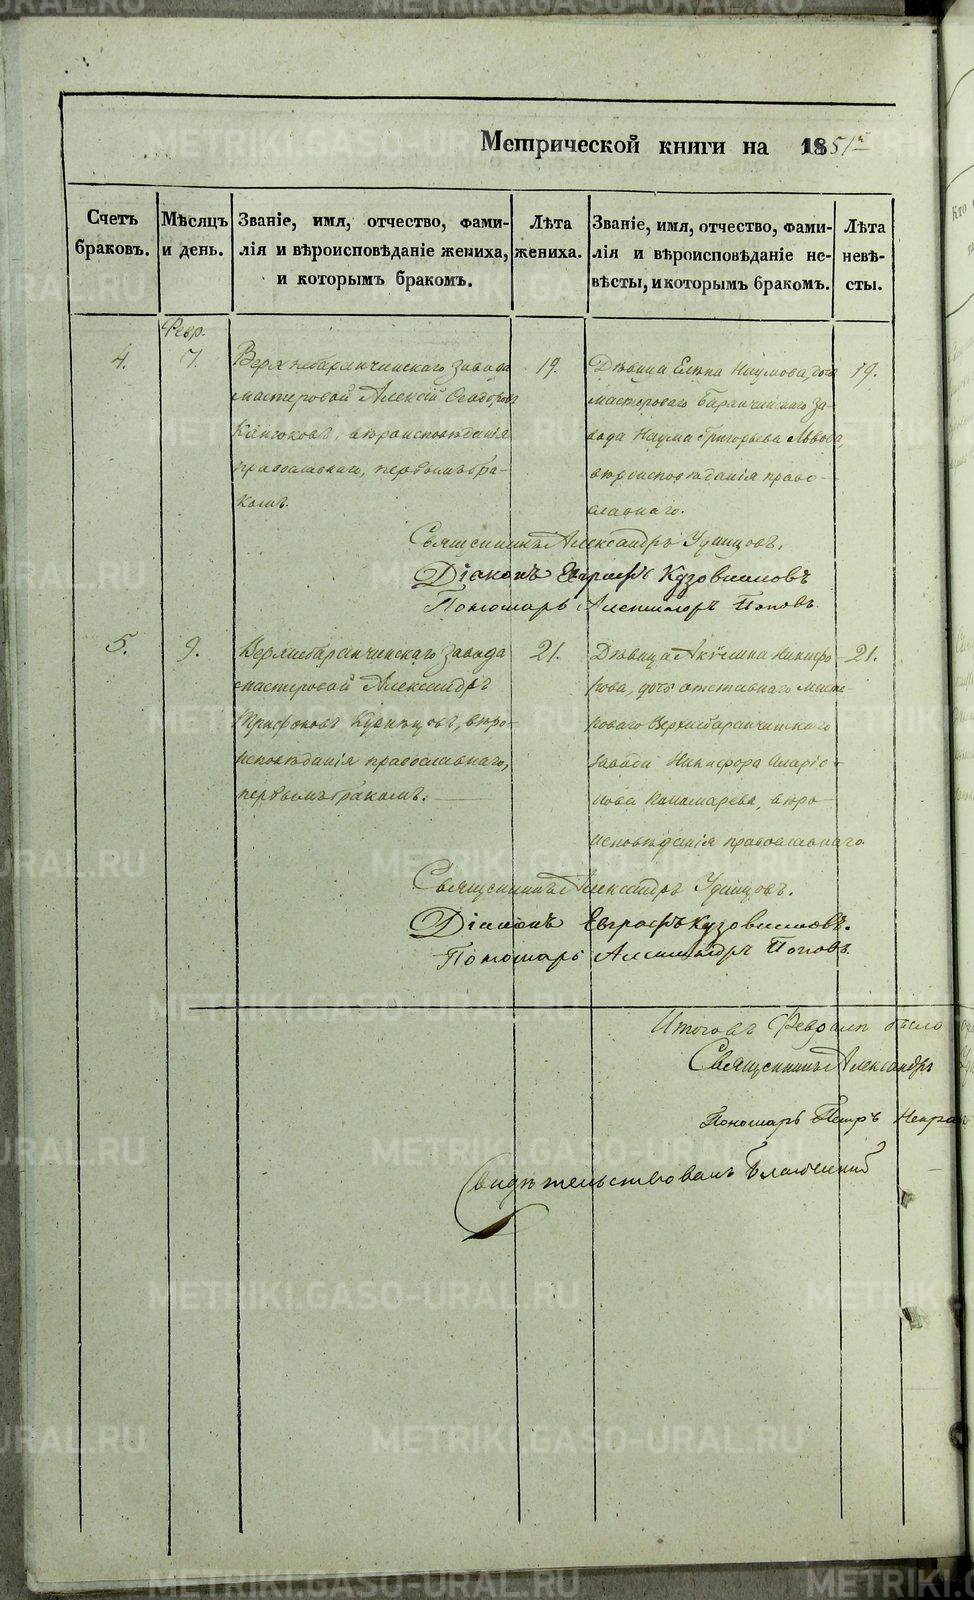 Метрической книги на 1851й
Счетъ браковъ.
Мѣсяцъ и день.
Званіе, имя, отчество, фами-
лія и вѣроисповѣданіе жениха,
и которымъ бракомъ.
Лѣта
жениха.
Званіе, имя, отчество, фами-
лія и вѣроисповѣданіе не-
вѣсты, и которымъ бракомъ.
Лѣта
невѣ-
сты.
Февр.
4.
7.
Верхнебаранчинскаго завода
мастеровой Алексій Ѳеодоровъ
вѣроисповѣданія
православнаго, первымъ бра-
комъ.
19.
Дѣвица Елена Наумова, дочь
мастероваго Баранчинскаго за-
вода Наума Григорьева Львова,
вѣроисповѣданія право-
славнаго.
19.
Священникъ Александръ Удинцовъ.
Діаконъ Евграфъ Кузовниковъ
Пономарь Александръ Поповъ.
5.
9.
Верхнебаранчинскаго завода
мастеровой Александръ
Трифоновъ вѣро-
исповѣданія православнаго,
первымъ бракомъ.
21.
Дѣвица Акилина Никифо-
рова, дочь отставнаго масте-
роваго Верхнебаранчинскаго
завода Никифора Иларіо-
нова Пономарева, вѣро-
исповѣданія православнаго
21.
Священникъ Александръ Удинцовъ.
Діаконъ Евграфъ Кузовниковъ.
Пономарь Александръ Поповъ.
Итого въ Февралѣ было
Священникъ Александръ
Пономарь Петръ
Свидѣтельствовалъ Благочинный
METRIKI.GASO-URAL.RU